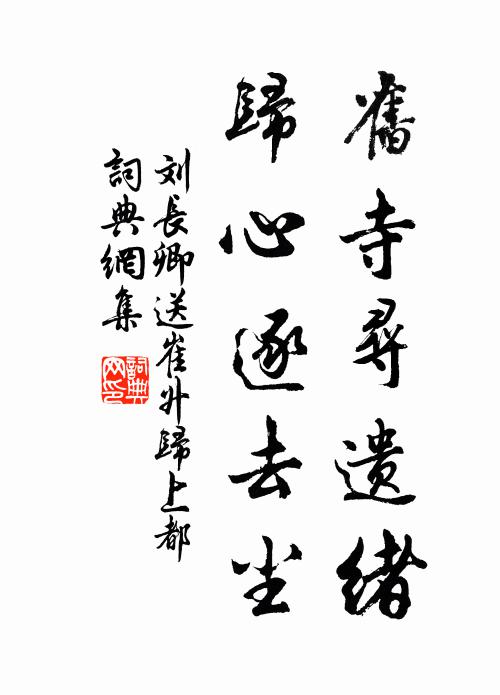 舊寺尋遺緒
歸心逐去塵
刘長卿送崔升歸上都
詞典網集
詞典網印